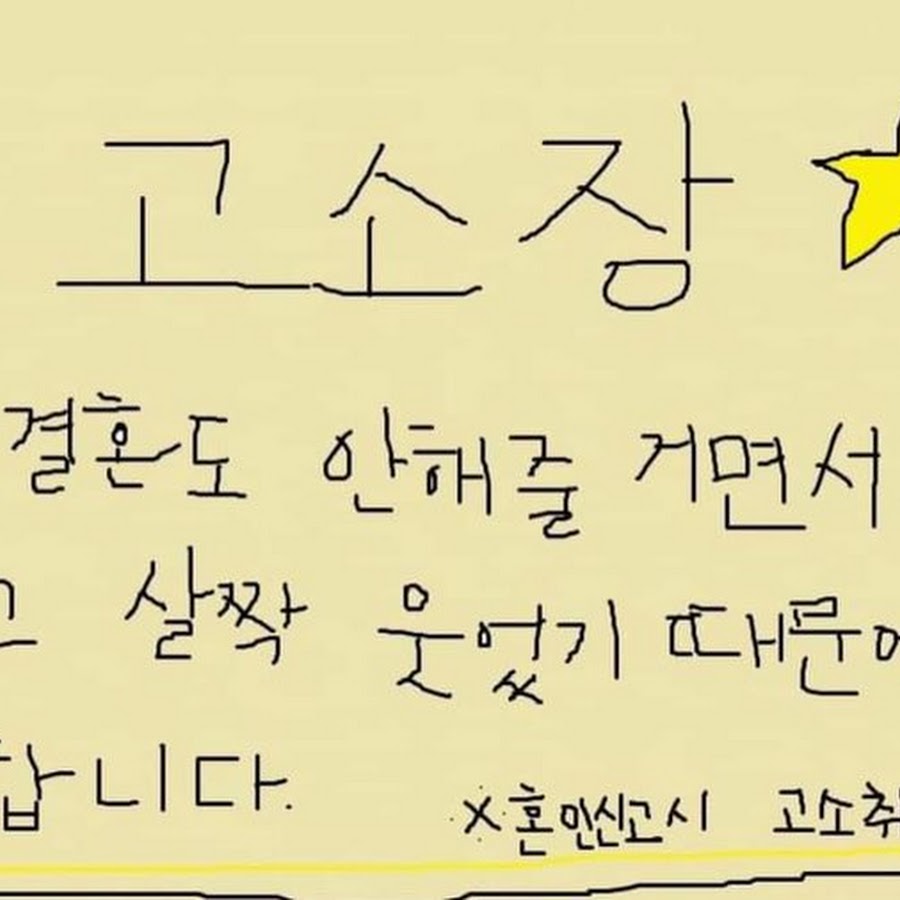 고소장
결혼도 안해줄 거면서
살짝 웃었기 때문에
합니다.
※혼인신고시 고소취